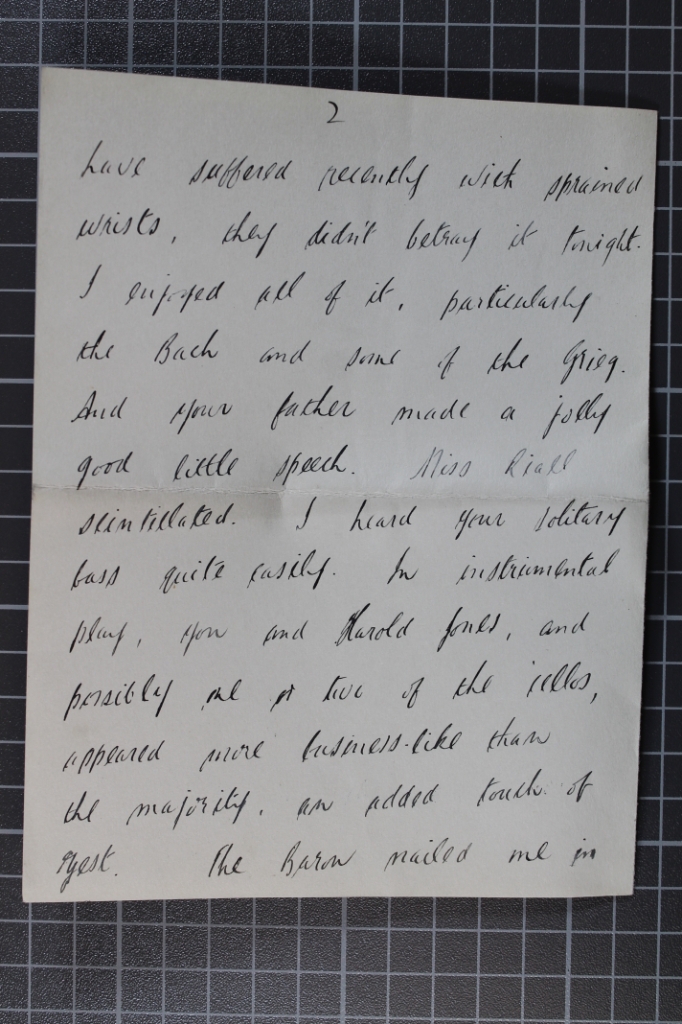 2
have suffered recently with sprained
wrists, they didn't betray it tonight.
I enjoyed all of it, particularly
the Bach and some of the Grieg.
And your father made a jolly
good little speech. Miss
scintillated. I heard your solitary
bass quite easily. In instrumental
play, you and Harold Jones, and
possibly one or two of the 'cellos,
appeared more business-like than
the majority, an added touch of
zest. The Baron nailed me in